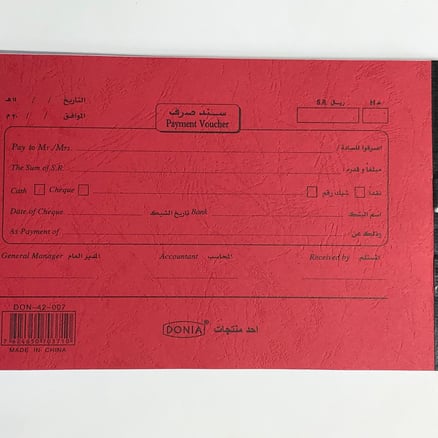 التاريخ / / ١٤هـ ريال S.R. هـ H
الموافق / / ٢٠م
سند صرف
Payment Voucher
Pay to Mr./Mrs. اصرفوا للسادة/
The Sum of S.R. مبلغاً وقدره/
Cash Cheque شيك رقم نقداً
Date of Cheque تاريخ الشيك Bank اسم البنك
As Payment of وذلك عن
General Manager المدير العام Accountant المحاسب Received by المستلم
DON-42-007
MADE IN CHINA
DONIA® احد منتجات